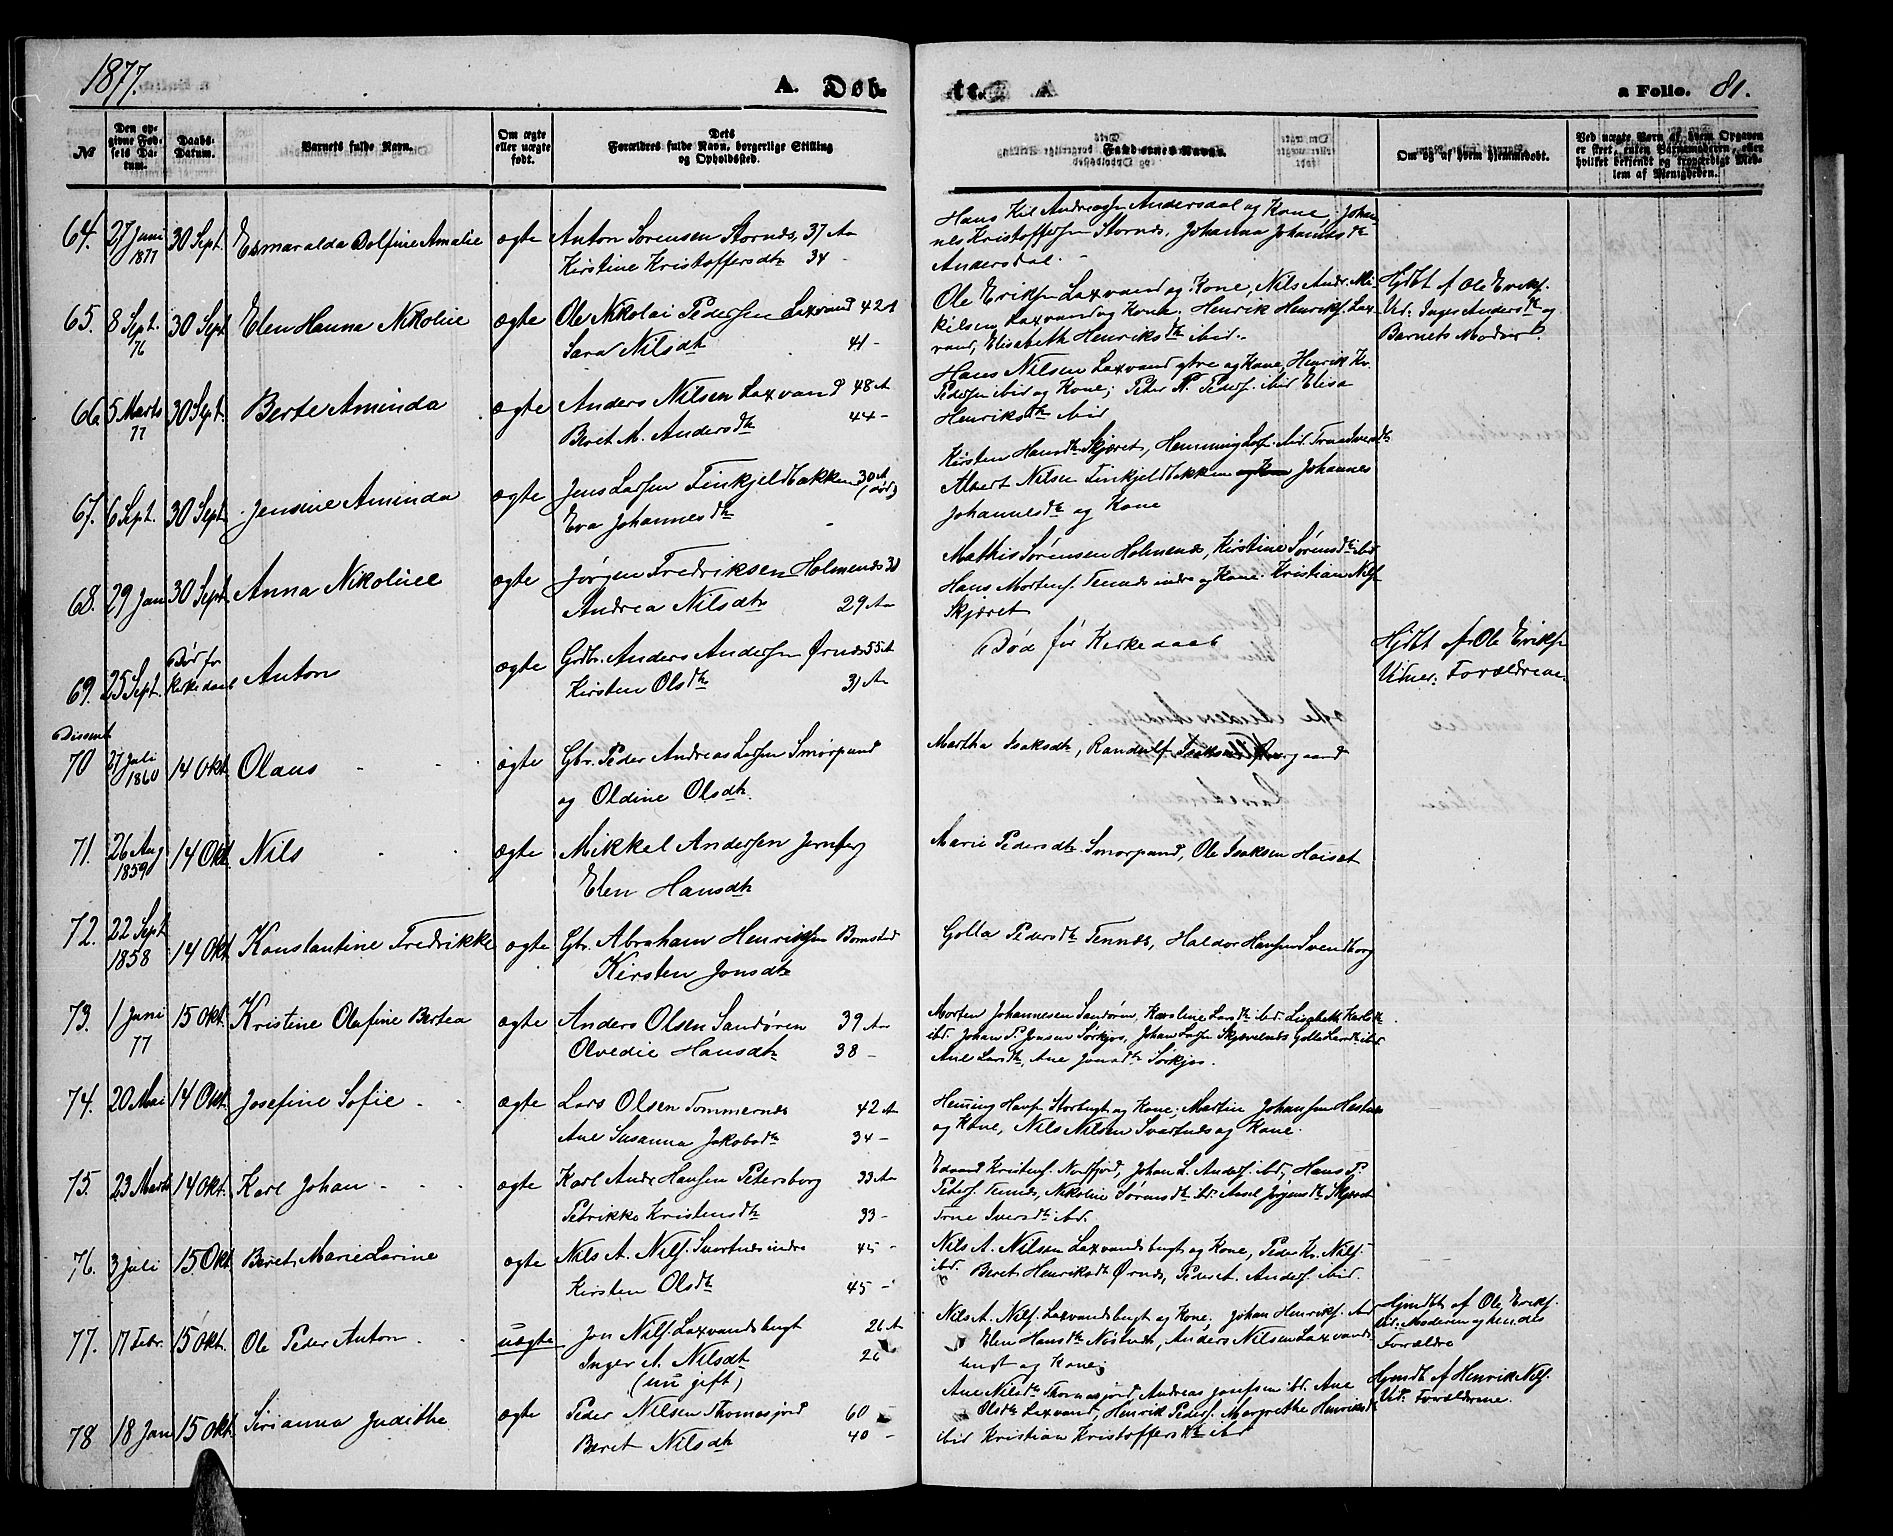 1877.
A. Døb-
te. A
a Folio. 81.
№
Den op-
givne Fød-
sels Da-
tum.
Daabs-
Datum.
Barnets fulde Navn.
Om ægte
eller uægte
født.
Dets
Forældres fulde Navn, borgerlige Stilling
og Opholdssted.
Faddernes Navne.
Om og af hvem hjemmedøbt.
Ved uægte Børn af hvem Opgaven
er skeet, enten Barnemoderen, eller
hvilket bekjendt og troværdigt Med-
lem af Menigheden.
64. 27 Juni 1877 30 Sept. Esmaralda Dolfine Amalie ægte Anton Sørensen Stornes, 37 Aar
Kirstine Kristoffersdtr 34 -
Hans Kil Andreasen Andersdal og Kone, Johan-
nes Kristoffersen Stornes, Johanna Johannesdtr
Andersdal. -
65. 8 Sept. 76 30 Sept Elen Hanna Nikoline ægte Ole Nikolai Pedersen Laxvand 42 A
Sara Nilsdtr 41 -
Ole Eriksen Laxvand og Kone, Nils Andr. Mi-
kelsen Laxvand og Kone, Henrik Henriks. Lax-
vand, Elisabeth Henriksdtr ibid.
Hjdbt af Ole Eriks.
Vid: Inger Andersdtr og
Barnets Moder
66 5 Marts 77 30 Sept. Berte Aminda ægte Anders Nilsen Laxvand 48 A
Beret M. Andersdtr 44 -
Hans Nilsen Laxvand ytre og Kone, Henrik Kr.
Pedersen ibid og Kone; Peter N. Peders. ibid Elisa
Henriksdtr ibid
67. 6 Sept. 30 Sept Jensine Aminda ægte Jens Larsen Finkjeldbakken 30 A (død)
Eva Johannesdtr -
Kirsten Hansdtr Skjæret, Hemming Lars. ibid. Trine Iversdtr
Albert Nilsen Finkjeldbakken og Kone Johannes
Johannesdtr og Kone
68. 29 Jan 30 Sept Anna Nikoline ægte Jørgen Fredriksen Holmenes 30
Andrea Nilsdtr 29 Aar
Mathis Sørensen Holmenes, Kirstine Sørensdtr ibid
Hans Mortens. Tennes indre og Kone. Kristian Nils.
Skjæret
69. 25 Sept. Død før Kirkedaab Anton ægte Gdbr. Anders Andersen Ørnes 55 A
Kirsten Olsdtr 31 Aar
Død før Kirkedaab
Hjdbt af Ole Eriks.
Vidner: Forældrene
Dissent
70 27 Juli 1860 14 Okt. Olaus - - ægte Gbr. Peder Andreas Larsen Smørpund
og Oldine Olsdtr.
Martha Isaksdtr, Randulf Isaksen Aargaard
71. 26 Aug 1859 14 Okt. Nils - - ægte Mikkel Andersen Jernberg
Elen Hansdtr
Marie Pedersdtr Smørpund, Ole Isaksen Heiset
72. 22 Sept 1858 14 Okt. Konstantine Fredrikke ægte Gbr. Abraham Henriksen Bomstad
Kirsten Jonsdtr
Golla Pedersdtr Tennes, Haldor Hansen Svendborg
73. 1 Juni 77 15 Okt. Kristine Olafine Bertea ægte Anders Olsen Sandøren 39 Aar
Olvedie Hansdtr 38 -
Morten Johannesen Sandøren, Karoline Larsdtr ibd. Lisabeth Karlsdtr
ibd. Johan P. Jensen Sørkjos, Johan Larsen Skjævelnes Golla Larsdtr ibid
Ane Larsdtr, Ane Jonsdtr Sørkjos.
74. 20 Mai 14 Okt. Josefine Sofie - - ægte Lars Olsen Tømmernes 42 A
Ane Susanna Jakobsdtr 34 -
Heming Hans. Storbugt og Kone, Martin Johansen Hestnes
og Kone, Nils Nilsen Svartnes og Kone.
75. 23 Marts 14 Okt. Karl Johan - - - ægte Karl Andr Hansen Petersborg 33 Aar
Petrikke Kristensdtr 33 -
Edvard Kristens. Nordfjord, Johan L. Anders. ibd., Hans P.
Peders. Tennes, Nikoline Sørensdtr ibd. Anel Jørgensdtr Skjæret
Trine Iversdtr ibd.
76. 3 Juli 15 Okt. Beret Marie Larine ægte Nils A. Nils. Svartnes indre 45 -
Kirsten Olsdtr 45 -
Nils A. Nilsen Laxvandsbugt og Kone, Peder Kr. Nils.
ibd. Beret Henriksdtr Ørnes, Peder A. Anders. ibid.
77. 17 Febr. 15 Okt. Ole Peder Anton - - uægte Jon Nils. Laxvandsbugt 26 A
Inger A. Nilsdtr 26
(nu gift)
Nils A. Nils. Laxvandsbugt og Kone, Johan Henriks. ibd
Elen Hansdtr Nøstnes, Anders Nilsen Laxvands-
bugt og Kone,
Hjmdbt af Ole Eriks.
Vid: Moderen og hendes
Forældre
78 18 Jan 15 Okt Sirianna Judithe ægte Peder Nilsen Thomasjord 60 -
Beret Nilsdtr 40 -
Ane Nilsdtr Thomasjord, Andreas Josefsen ibd. Ane
Olsdtr Laxvand, Henrik Peders. Margrethe Henriksdtr
ibid Kristian Kristoffersdtr ibid
Hjmdt af Henrik Nils.
Vid: Forældrene.